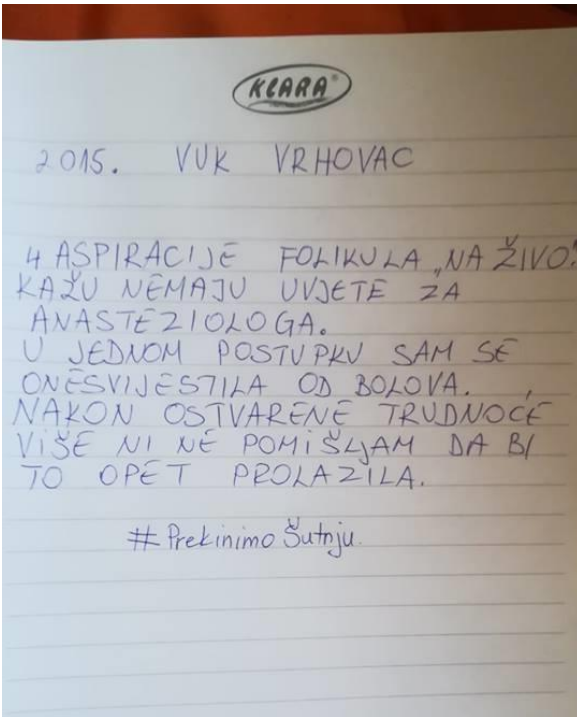 KLARA®
2015. VUK VRHOVAC
4 ASPIRACIJE FOLIKULA „NA ŽIVO".
KAŽU NEMAJU UVJETE ZA
ANASTEZIOLOGA.
U JEDNOM POSTUPKU SAM SE
ONESVIJESTILA OD BOLOVA.
NAKON OSTVARENE TRUDNOĆE
VIŠE NI NE POMIŠLJAM DA BI
TO OPET PROLAZILA.
#Prekinimo Šutnju.